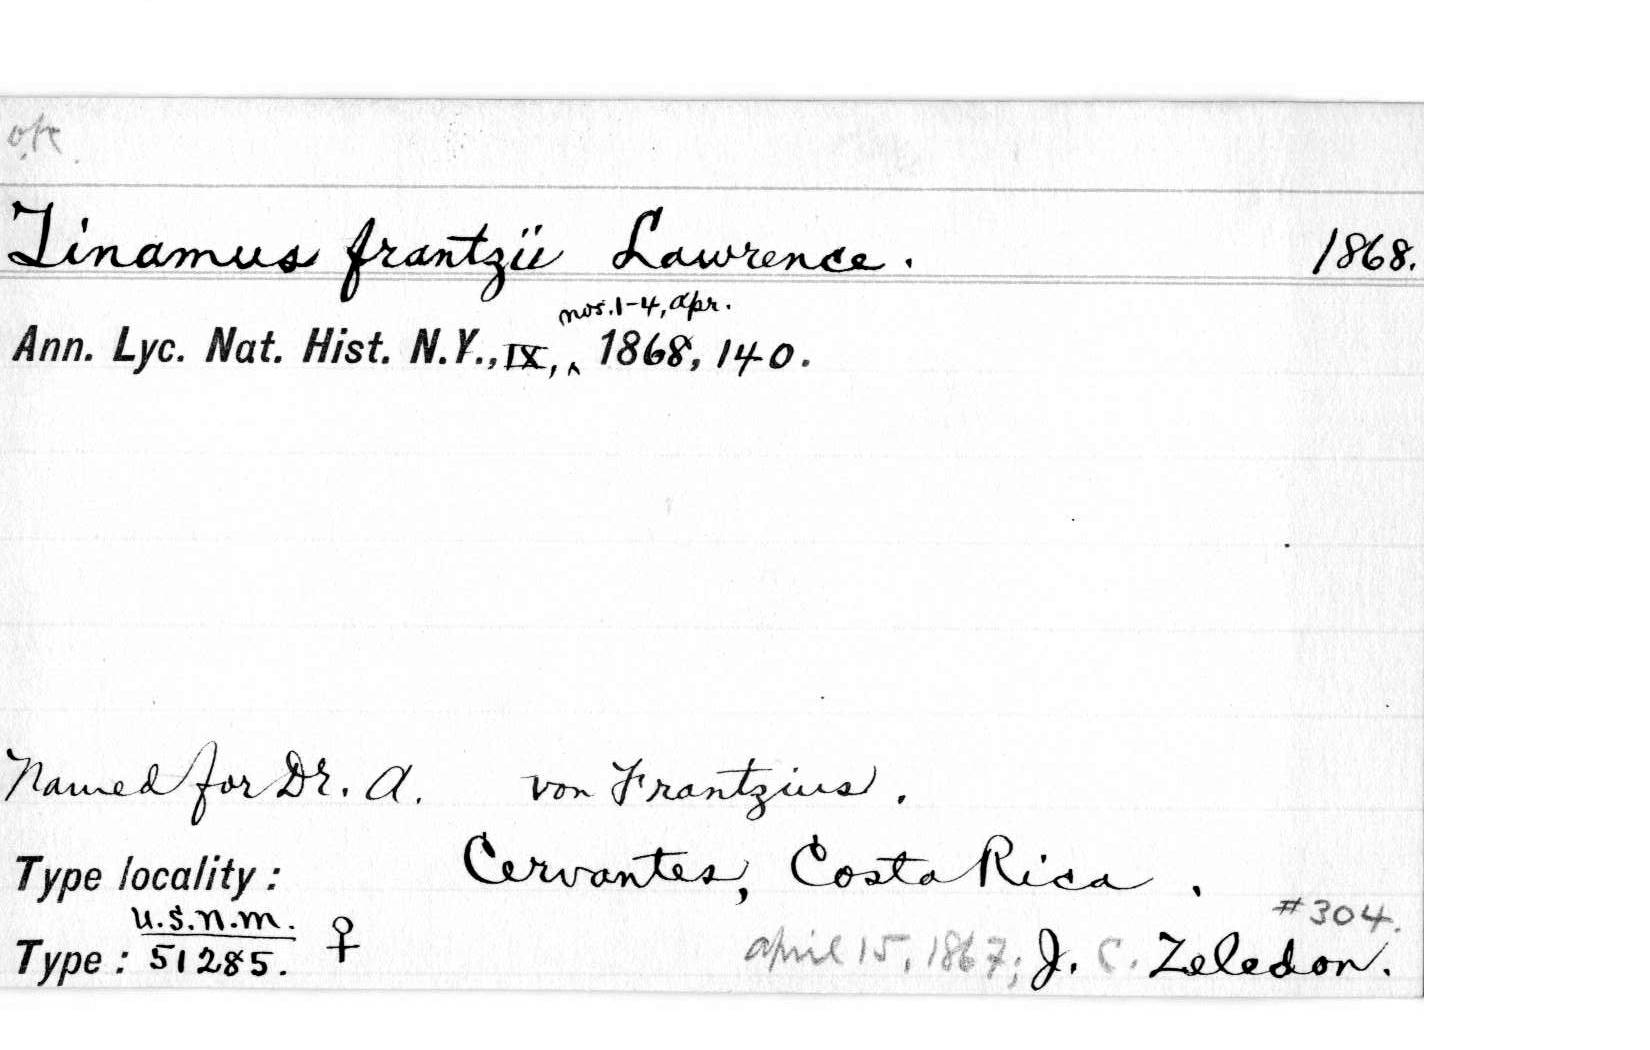 ok.
Tinamus frantzii Lawrence. 1868.
nos. 1-4, Apr.
Ann. Lyc. Nat. Hist. N.Y., IX, ^ 1868, 140.
Named for Dr. A. von Frantzius.
Type locality: Cervantes, Costa Rica.
U.S.N.M. #304.
Type: 51285. ♀ April 15, 1867; J. C. Zeledon.